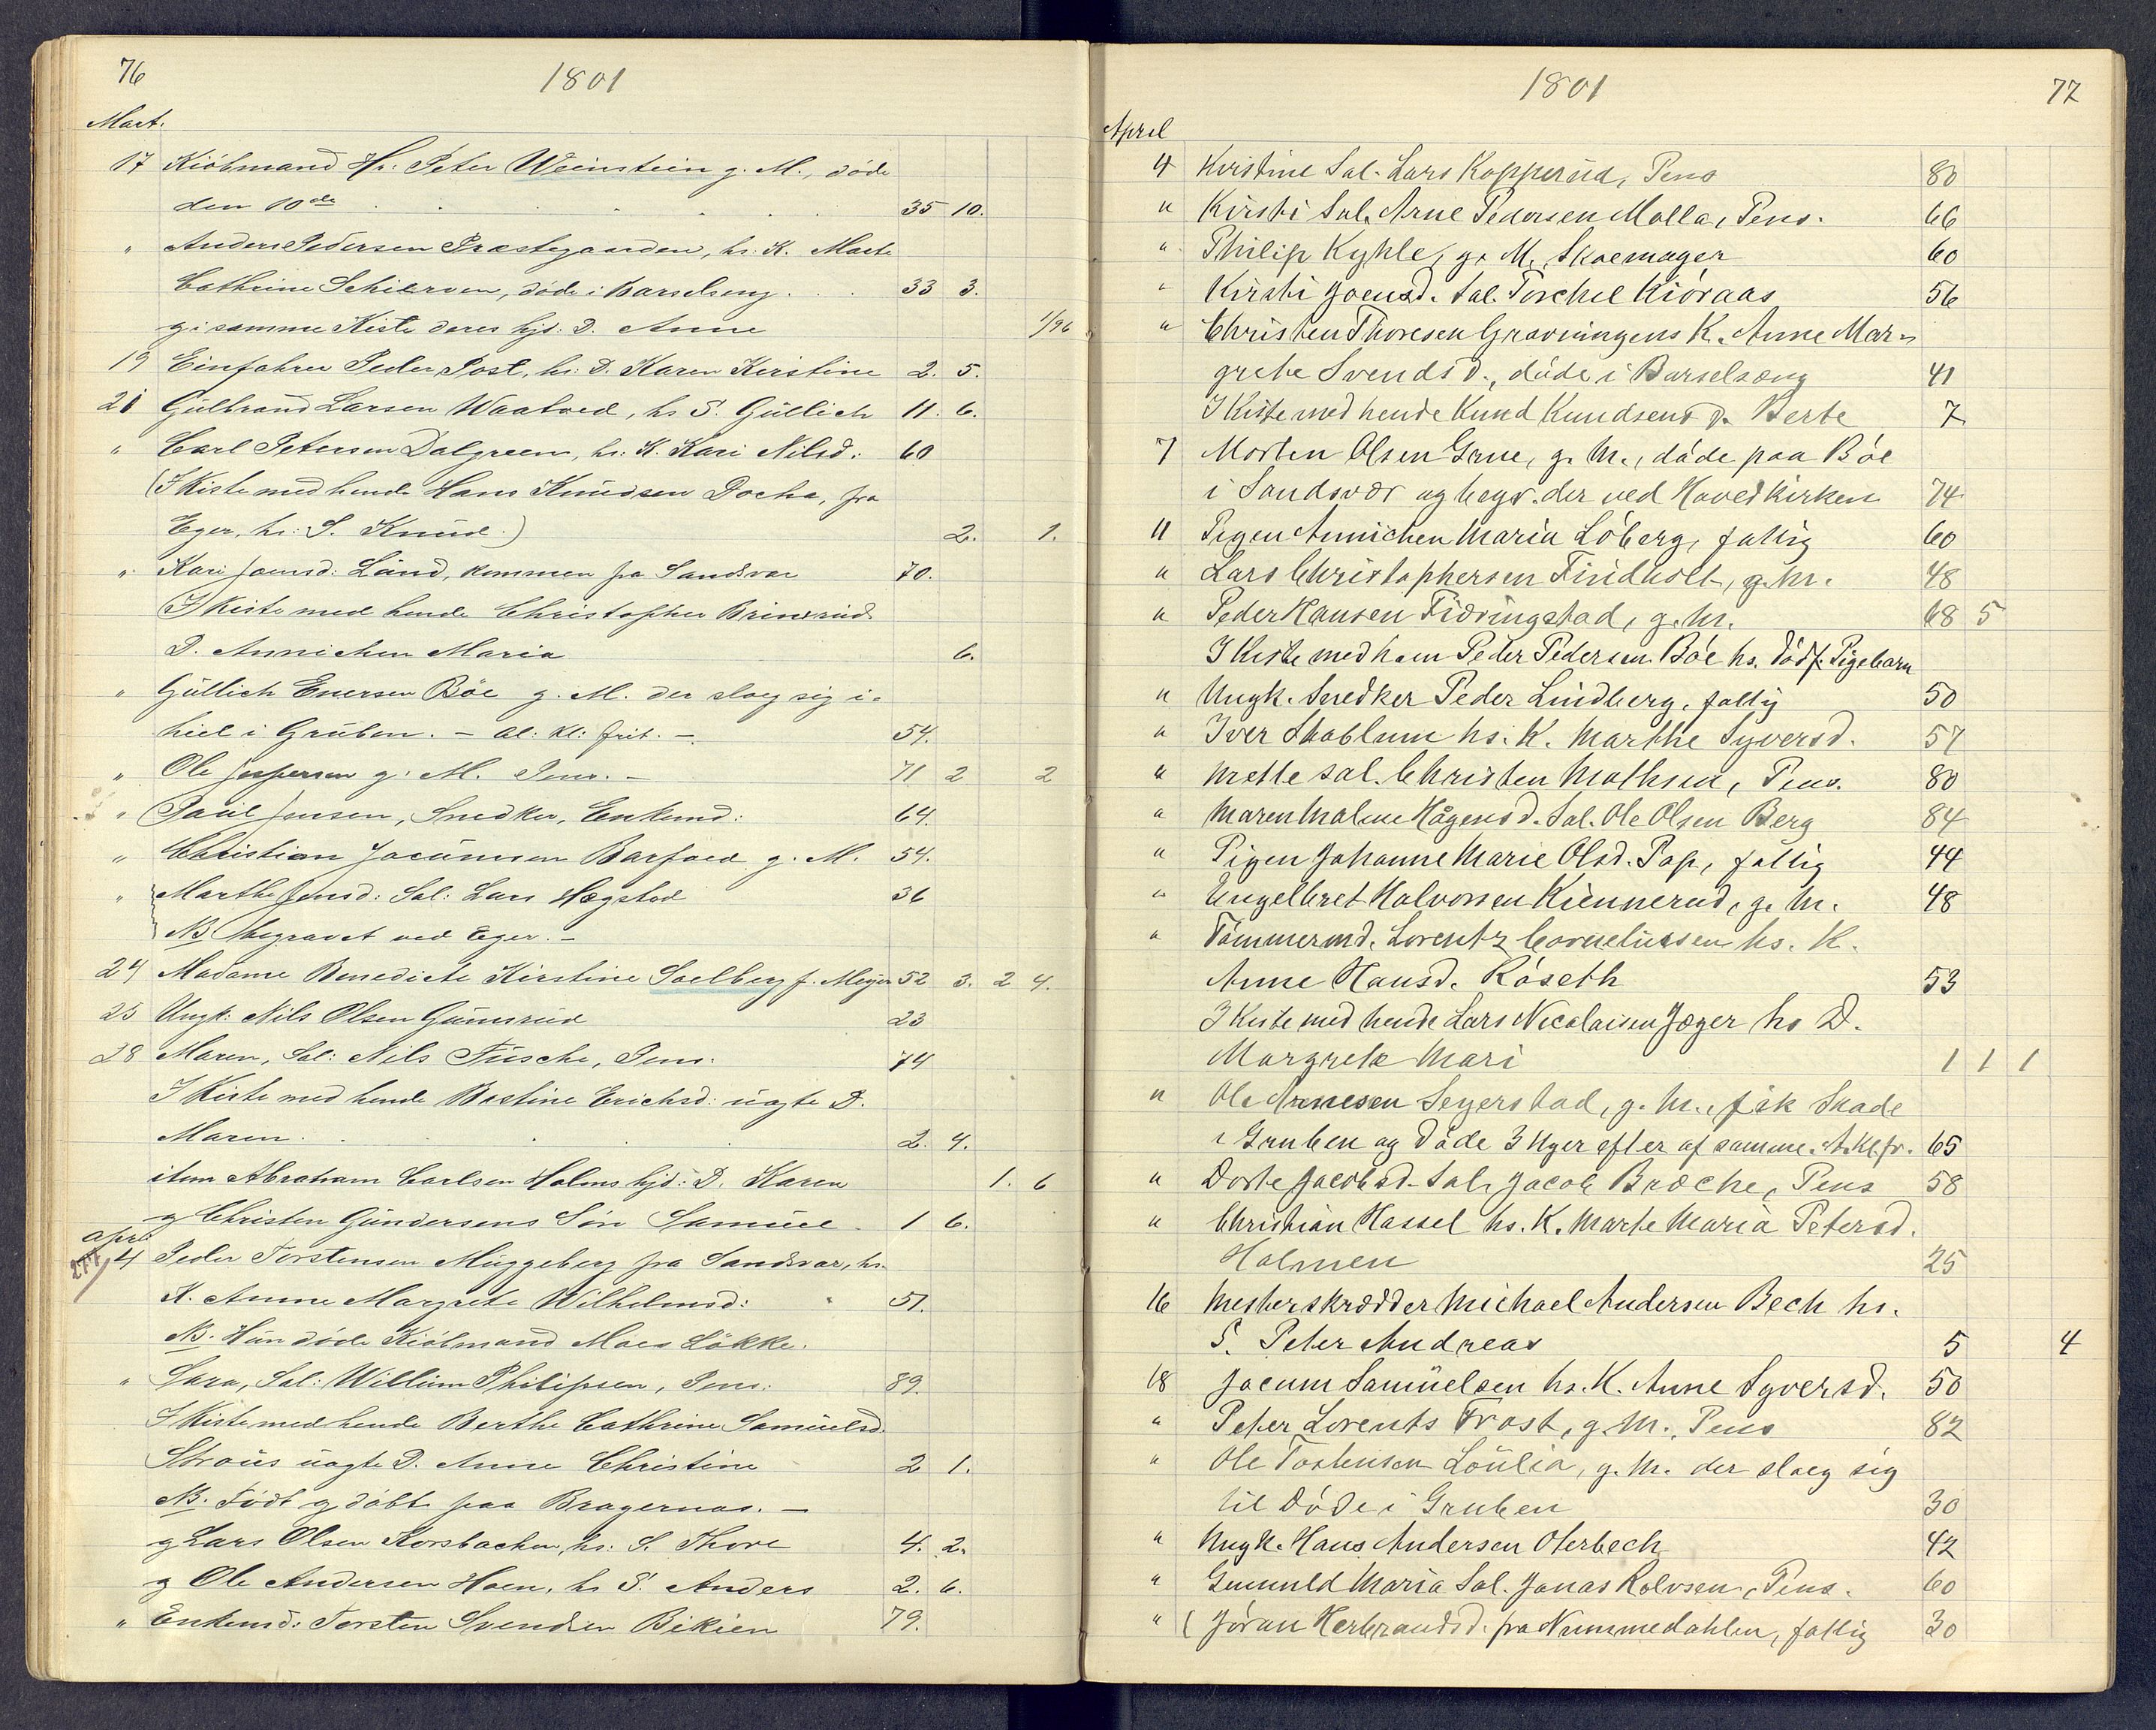 76
1801
Mart.
17 Kiöbmand Hr: Peter Weinstein g. M., döde
den 10de 35 10.
" Anders Pedersen Præstegaarden, hs. K. Marte
Cathrine Schierven, döde i Barselseng 33 3.
g i samme Kiste deres hjd: D. Anne 1/96
19 Einfahrer Peder Post, hs: D. Karen Kirstine 2. 5.
21 Gulbrand Larsen Waatved, hs S. Güllich 11. 6.
" Carl Petersen Dalgreen, hs: K. Kari Nilsd: 60
(I Kiste med hende Hans Knudsen Docka, fra
Eger, hs: S. Knud.) 2. 1.
" Kari Joensd: Lünd, kommen fra Sandsvær 70.
I Kiste med hende Christopher Brinsrud
D. Annichen Maria 6.
" Güllich Enersen Böe g. M. der sloeg sig i-
hiel i Gruben. - al: Kl: frit. - 54.
" Ole Jespersen g. M. Pens. - 71 2 2
" Paul Jensen, Snedker, Enkemd: 64.
" Christian Jacumsen Barfoed g. M. 54.
" Marthe Jensd: Sal: Lars Hegstad 36
NB begravet ved Eger. -
24 Madame Benedicte Kirstine Soelberg f. Meyer 52 3. 2 4.
25 Ungk: Nils Olsen Gunsrud 23
28 Maren, Sal: Nils Fusche, Pens. 74
I Kiste med hende Bertine Erichsd: uægte D.
Maren 2. 4.
item Abraham Carlsen Holms hjd: D. Karen 1. 6
g Christen Gundersens Sön Samuel 1 6.
apri
4 Peder Torstensen Muggeberg fra Sandsvær, hs.
K. Anne Margrete Wilhelmsd: 51.
NB. Hun döde Kiöbmand Moes Lökke.
" Sara, Sal: Willum Philipsen, Pens: 89.
I Kiste med hende Berthe Cathrine Samuelsd.
Straus uægte D. Anne Christine 2 1.
NB. Födt g döbt paa Bragernæs. -
g Lars Olsen Korsbachen, hs: S. Thore 4. 2.
g Ole Andersen Hoen, hs S. Anders 2. 6.
" Enkemd: Torsten Svendsen Bikien 79.
1801
77
April
4 Kirstine Sal. Lars Kopperud, Pens 80
" Kirsti Sal. Arne Pedersen Molla, Pens. 66
" Philip Kyhle, g. M. Skoemager 60
" Kirsti Joensd. Sal. Torchel Kióraas 56
" Christen Thoresen Gravningens K. Anne Mar-
grete Svendsd., döde i Barselsæng 41
I Kiste med hende Knud Knudsens D. Berte 7
7 Morten Olsen Grue, g. M., döde paa Böe
i Sandsvær og begr. der ved Hovedkirken 74
11 Pigen Annichen Maria Löberg, fattig 60
" Lars Christophersen Findholt, g. M. 48
" Peder Hansen Fiæringstad, g. M. 68 5
I Kiste med ham Peder Pedersen Böe hs. dödf. Pigebarn
" Ungk. Snedker Peder Lindberg, fattig 50
" Iver Skablum hs. K. Marthe Syversd. 57
" Mette Sal. Christen Mathsen, Pens. 80
" Maren Malene Hågensd. Sal. Ole Olsen Berg 84
" Pigen Johanne Marie Olsd. Pap, fattig 44
" Engelbret Halvorsen Kiennerud, g. M. 48
" Tömmermd. Lorentz Corneliussen hs. K.
Anne Hansd. Röseth 53
I Kiste med hende Lars Nicolaisen Jæger hs D.
Margrete Mari 1 1 1
" Ole Arnesen Segerstad, g. M., fik Skade
i Gruben og döde 3 Uger efter af samme. A. Kl. fr. 65
" Dorte Jacobsd. Sal. Jacob Bræche, Pens 58
" Christian Hassel hs. K. Marte Maria Petersd.
Holmen 25
16 Mesterskrædder Michael Andersen Bech hs.
S. Peter Andreas 5 4
18 Jocum Samuelsen hs. K. Anne Syversd. 50
" Peter Lorents Trost, g. M., Pens 82
" Ole Tostensen Löulia, g. M. der sloeg sig
til Döde i Gruben 30
" Ungk. Hans Andersen Oterbech 42
" Gunnuld Maria Sal. Jonas Rolvsen, Pens. 60
" (Jöran Herbrandsd. fra Nummedahlen, fattig 30